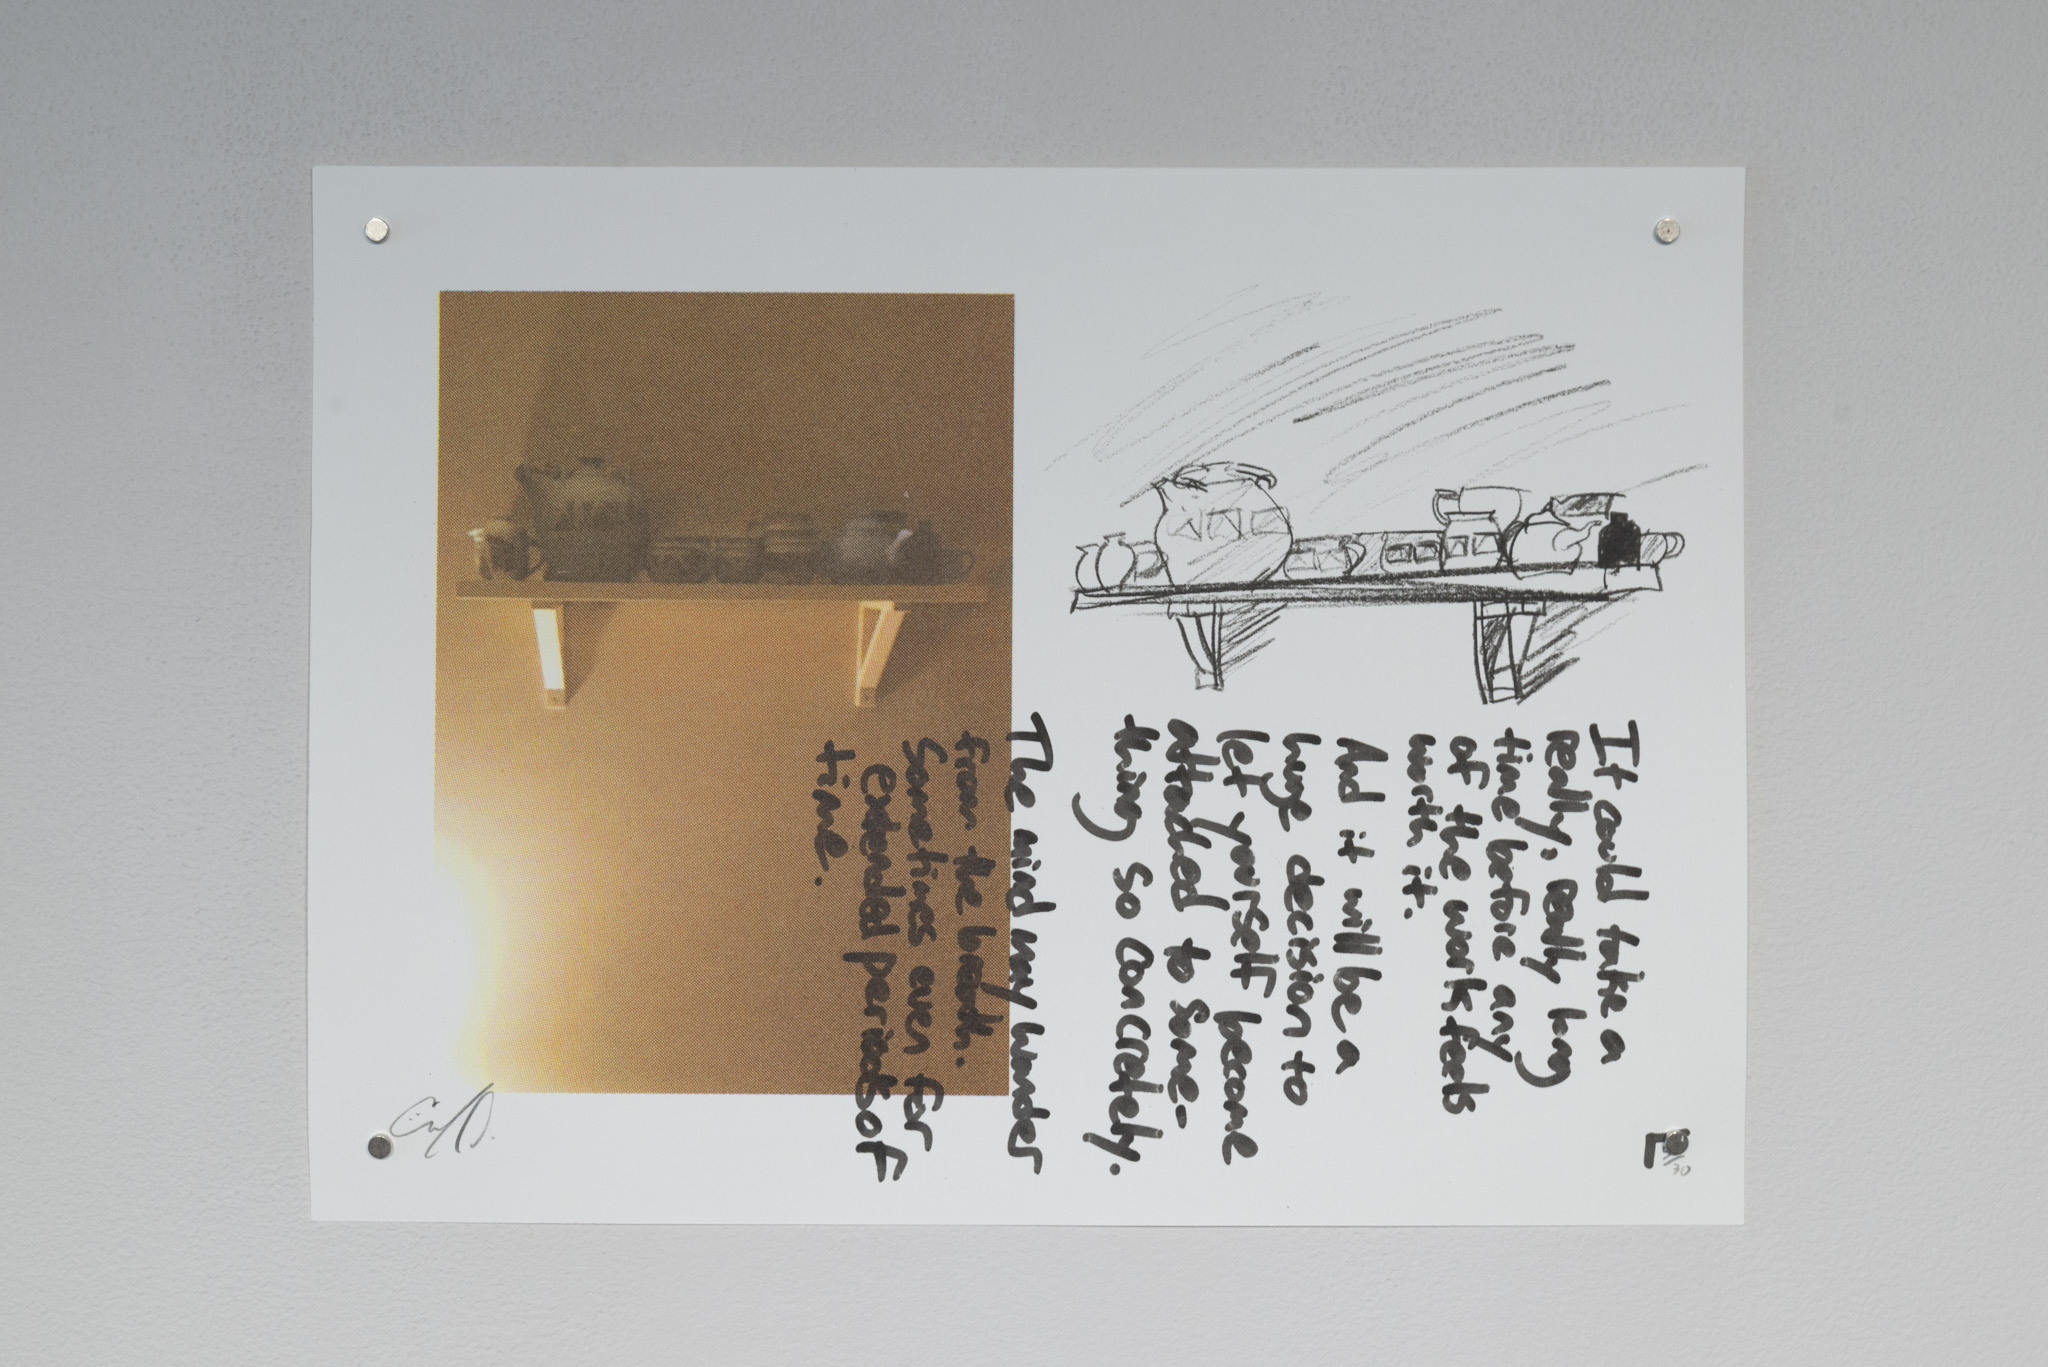 It could take a
really, really long
time before any
of the work feels
worth it.
And it will be a
huge decision to
let yourself become
attached to some-
thing so concretely.
The mind may wander
from the breath.
Sometimes even for
extended periods of
time.
30